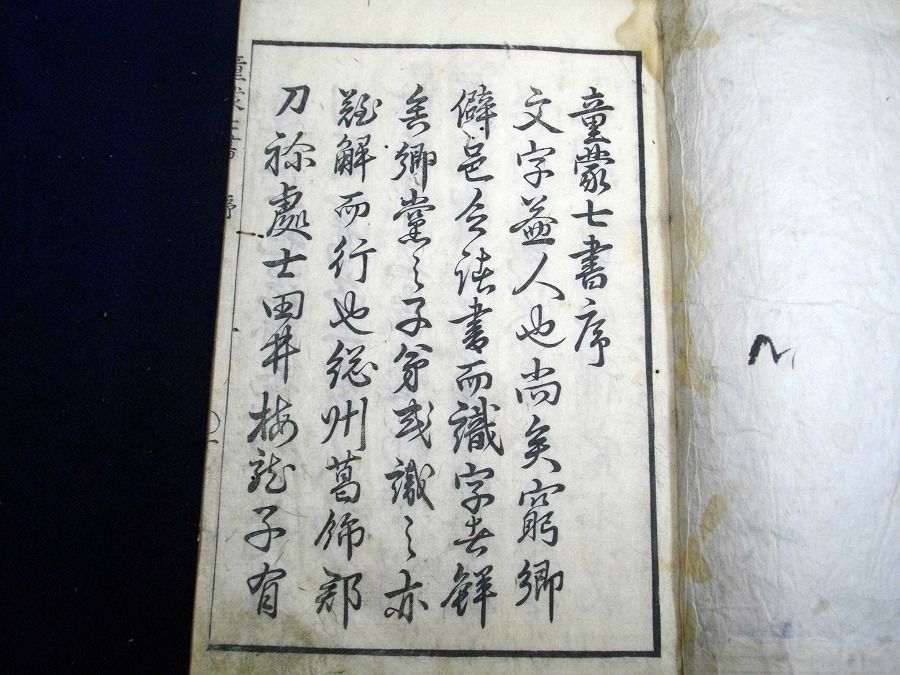 童蒙七書序
文字益人也尚矣窮郷
僻邑令読書而識字者鮮
矣郷黨之子弟或識之亦
難解而行也総州葛飾郡
刀祢處士田井梅龍子有
童蒙七書 序